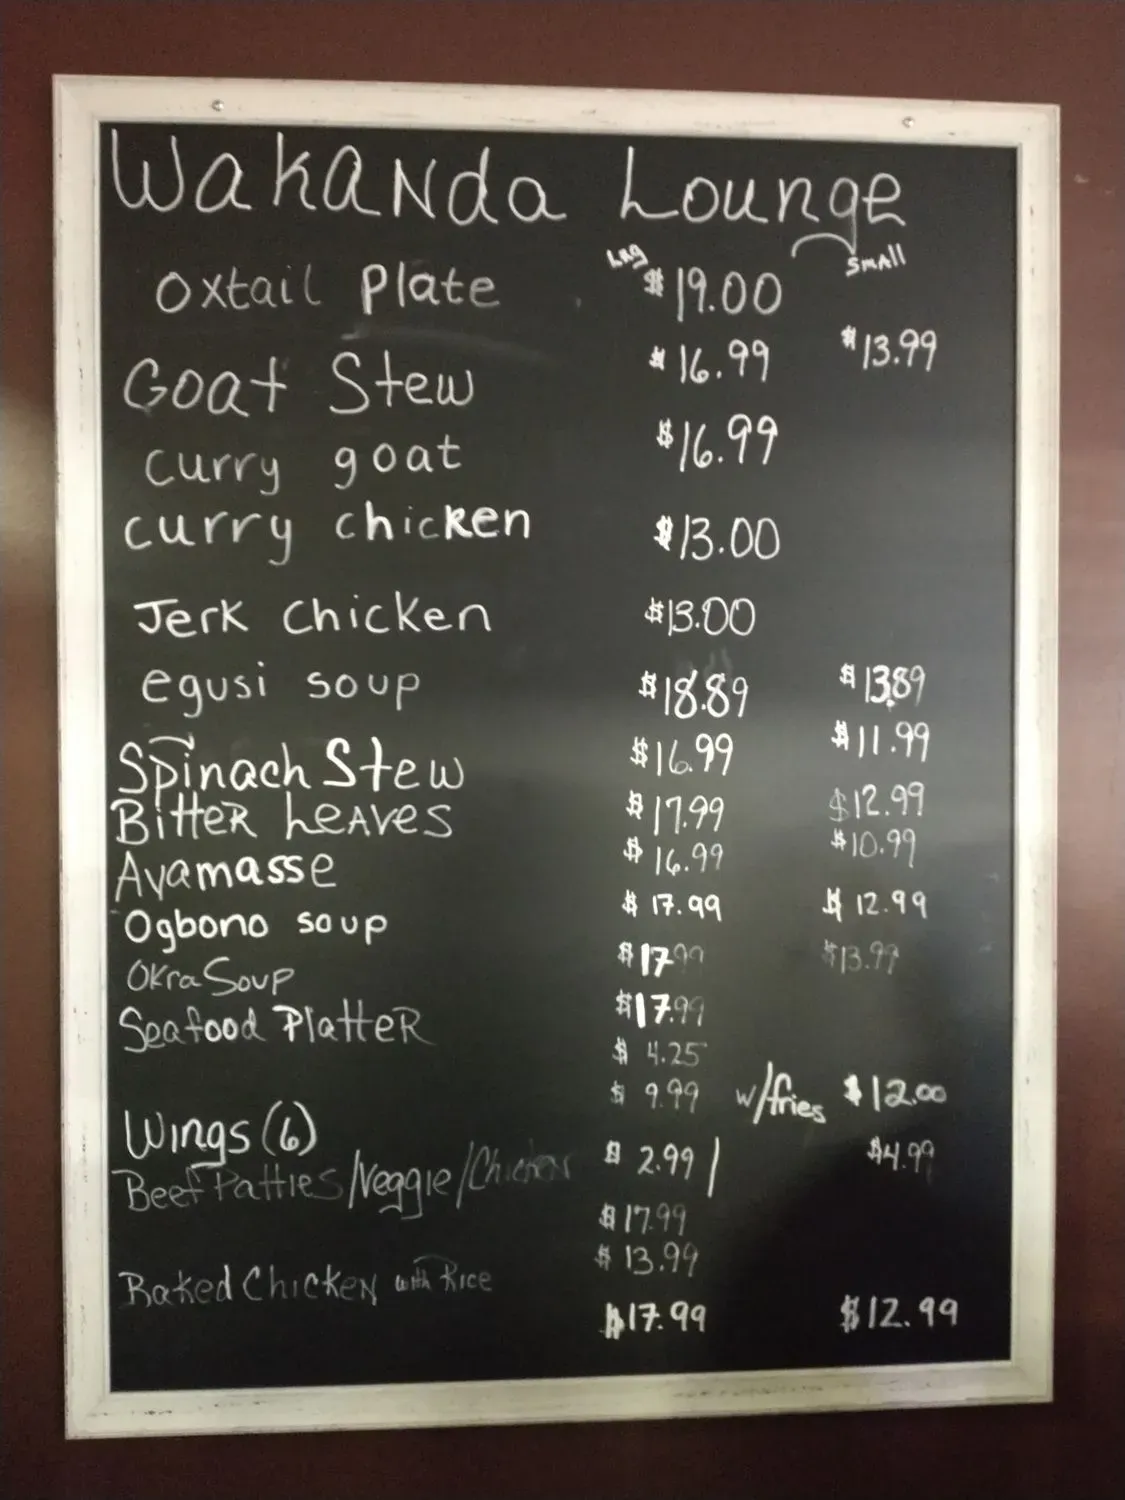 WakaNda Lounge
Lrg Small
Oxtail Plate $19.00
Goat Stew $16.99 $13.99
curry goat $16.99
curry chicken $13.00
Jerk Chicken $13.00
egusi soup $18.89 $13.89
Spinach Stew $16.99 $11.99
Bitter Leaves $17.99 $12.99
Ayamasse $16.99 $10.99
Ogbono soup $17.99 $12.99
Okra Soup $17.99 $13.99
Seafood Platter $17.99
$4.25
Wings (6) $9.99 w/fries $12.00
Beef Patties/Veggie/Chicken $2.99/ $4.99
$17.99
Baked Chicken with Rice $13.99
$17.99 $12.99